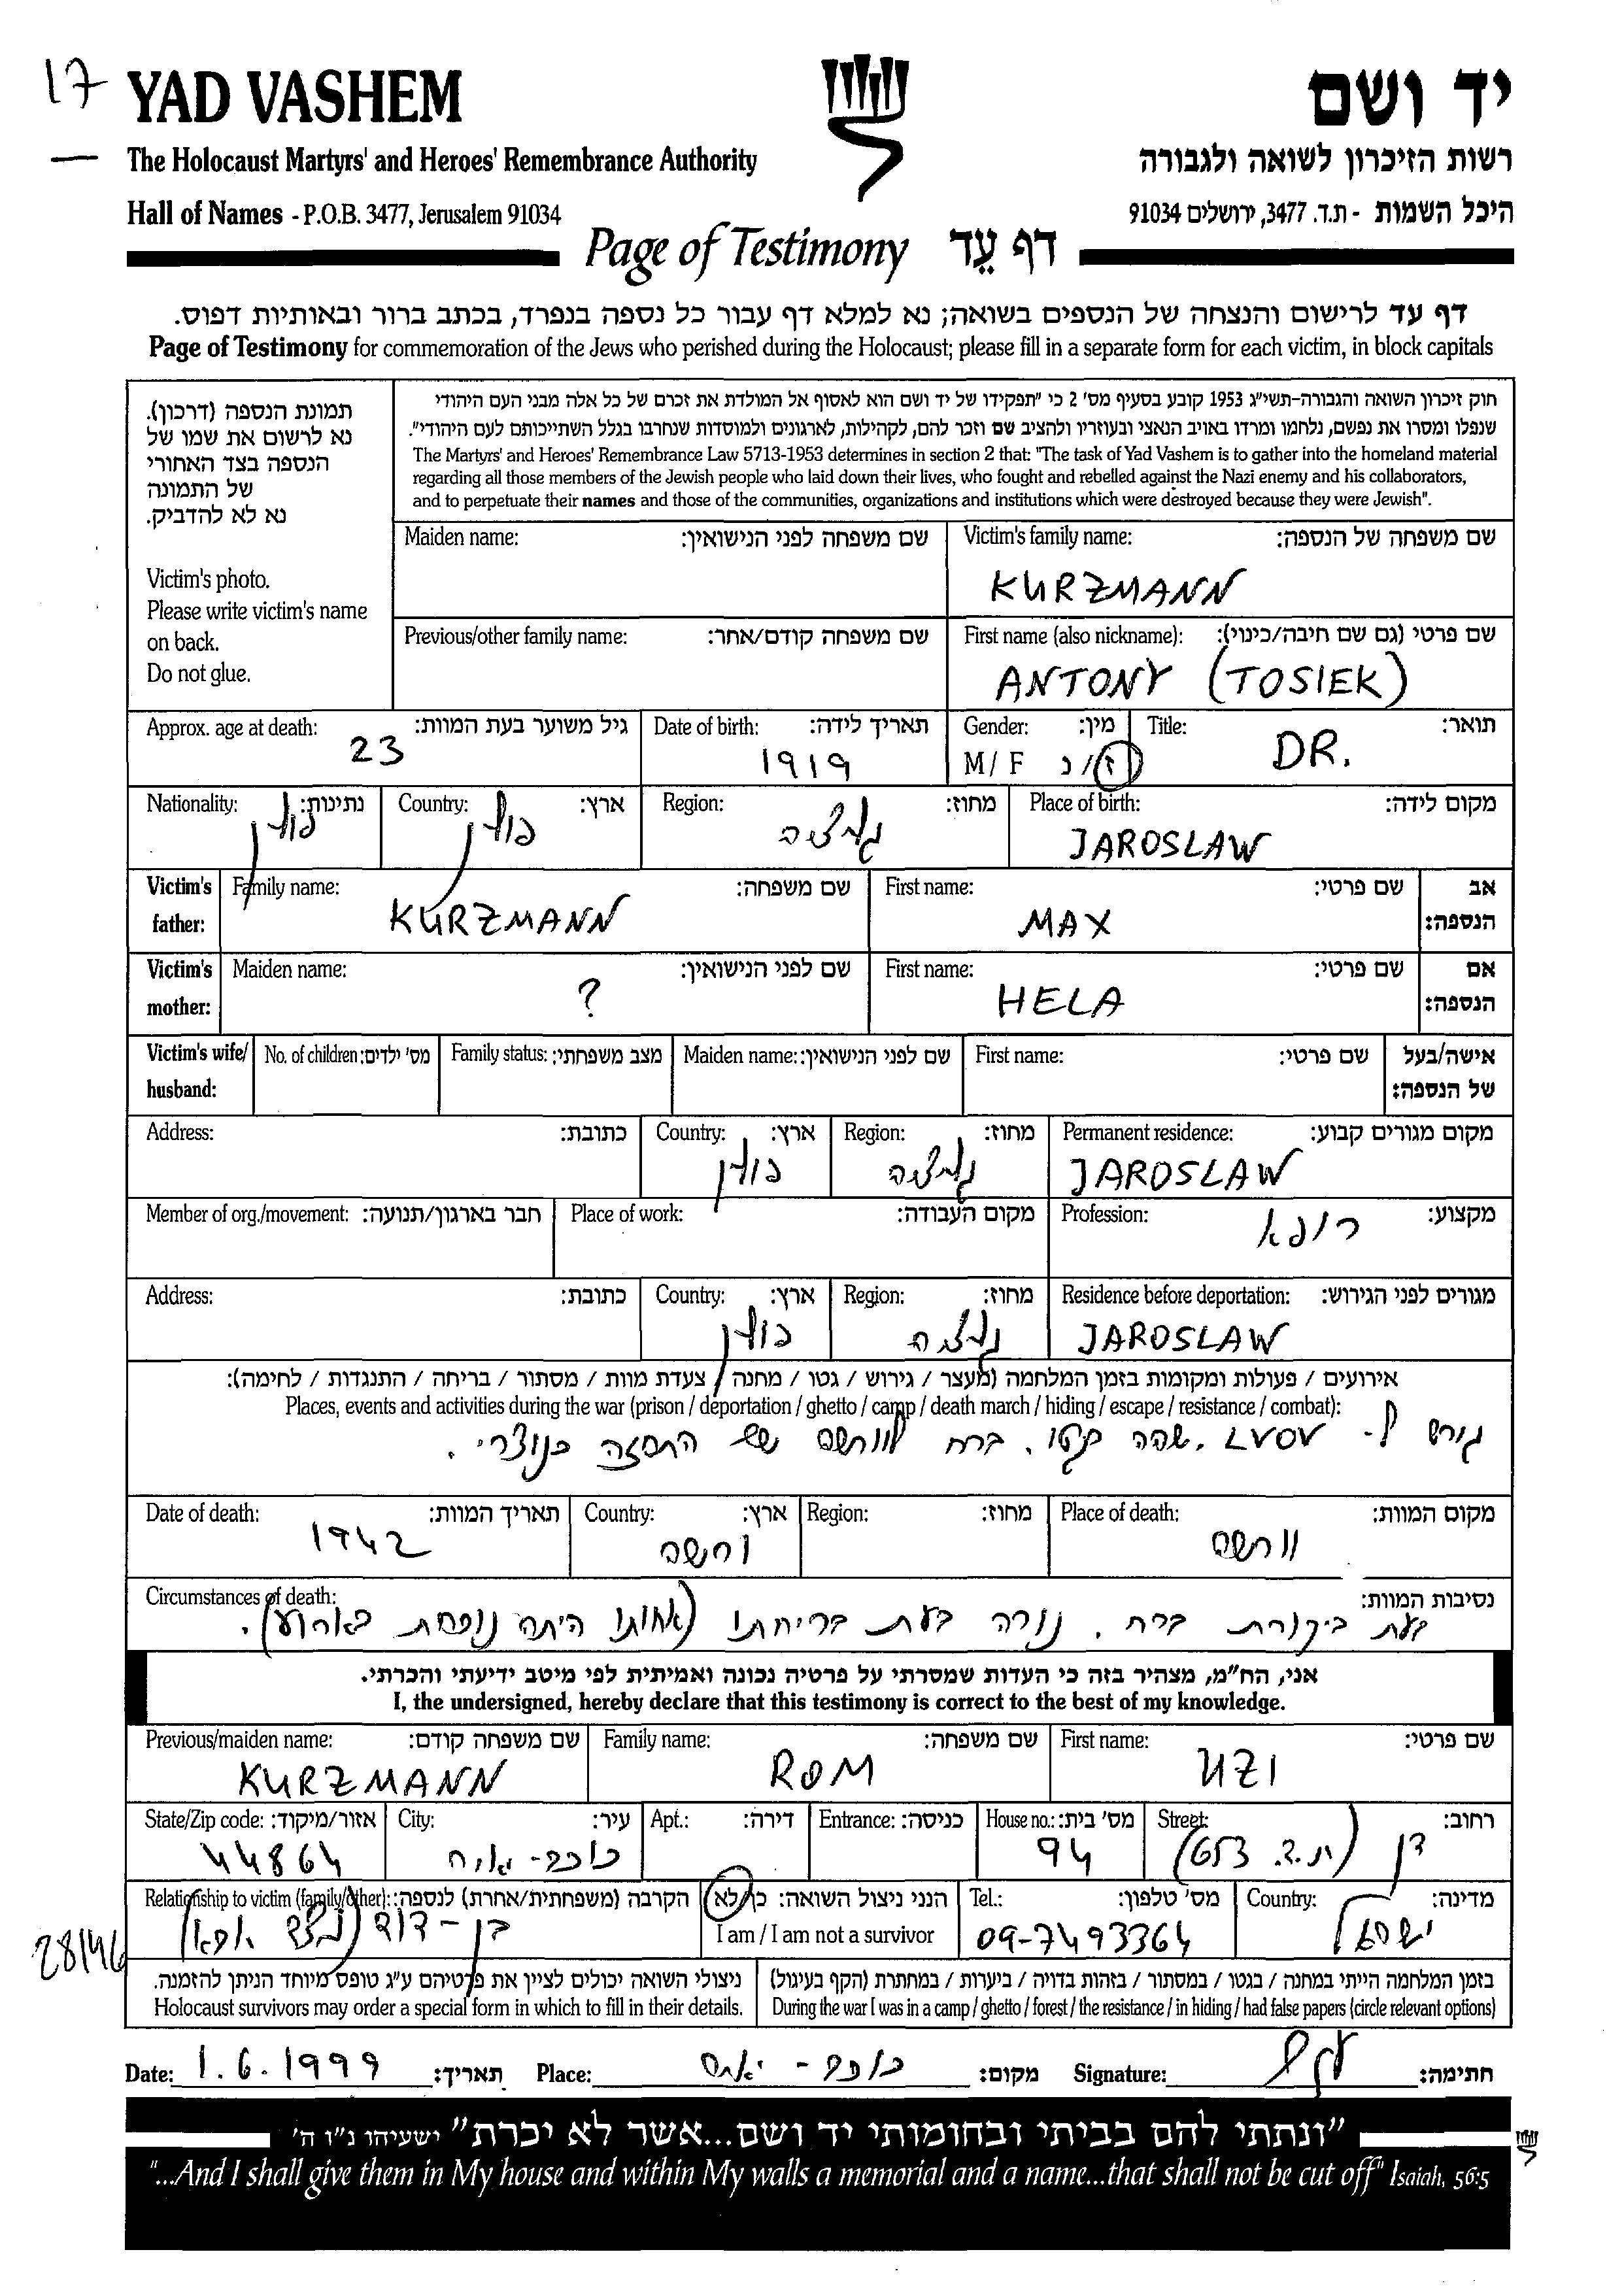 17
YAD VASHEM
יד ושם
The Holocaust Martyrs' and Heroes' Remembrance Authority
רשות הזיכרון לשואה ולגבורה
Hall of Names - P.O.B. 3477, Jerusalem 91034
היכל השמות - ת.ד. 3477, ירושלים 91034
Page of Testimony דף עֵד
דף עד לרישום והנצחה של הנספים בשואה; נא למלא דף עבור כל נספה בנפרד, בכתב ברור ובאותיות דפוס.
Page of Testimony for commemoration of the Jews who perished during the Holocaust; please fill in a separate form for each victim, in block capitals
תמונת הנספה (דרכון).
נא לרשום את שמו של
הנספה בצד האחורי
של התמונה
נא לא להדביק.
Victim's photo.
Please write victim's name
on back.
Do not glue.
חוק זיכרון השואה והגבורה-תשי"ג 1953 קובע בסעיף מס' 2 כי "תפקידו של יד ושם הוא לאסוף אל המולדת את זכרם של כל אלה מבני העם היהודי
שנפלו ומסרו את נפשם, נלחמו ומרדו באויב הנאצי ובעוזריו ולהציב שם וזכר להם, לקהילות, לארגונים ולמוסדות שנחרבו בגלל השתייכותם לעם היהודי".
The Martyrs' and Heroes' Remembrance Law 5713-1953 determines in section 2 that: "The task of Yad Vashem is to gather into the homeland material
regarding all those members of the Jewish people who laid down their lives, who fought and rebelled against the Nazi enemy and his collaborators,
and to perpetuate their names and those of the communities, organizations and institutions which were destroyed because they were Jewish".
Victim's family name: שם משפחה של הנספה:
KURZMANN
Maiden name: שם משפחה לפני הנישואין:
First name (also nickname): שם פרטי (גם שם חיבה/כינוי):
ANTONY (TOSIEK)
Previous/other family name: שם משפחה קודם/אחר:
Title: תואר:
DR.
Gender: מין:
M / F ז/נ
Date of birth: תאריך לידה:
1919
Approx. age at death: גיל משוער בעת המוות:
23
Place of birth: מקום לידה:
JAROSLAW
Region: מחוז:
גליציה
Country: ארץ:
פולין
Nationality: נתינות:
פולין
Victim's father: אב הנספה:
First name: שם פרטי:
MAX
Family name: שם משפחה:
KURZMANN
Victim's mother: אם הנספה:
First name: שם פרטי:
HELA
Maiden name: שם לפני הנישואין:
?
Victim's wife/ husband: אישה/בעל של הנספה:
First name: שם פרטי:
Maiden name: שם לפני הנישואין:
Family status: מצב משפחתי:
No. of children: מס' ילדים:
Permanent residence: מקום מגורים קבוע:
JAROSLAW
Region: מחוז:
גליציה
Country: ארץ:
פולין
Address: כתובת:
Profession: מקצוע:
רופא
Place of work: מקום העבודה:
Member of org./movement: חבר בארגון/תנועה:
Residence before deportation: מגורים לפני הגירוש:
JAROSLAW
Region: מחוז:
גליציה
Country: ארץ:
פולין
Address: כתובת:
אירועים / פעולות ומקומות בזמן המלחמה (מעצר / גירוש / גטו / מחנה / צעדת מוות / מסתור / בריחה / התנגדות / לחימה):
Places, events and activities during the war (prison / deportation / ghetto / camp / death march / hiding / escape / resistance / combat):
גורש ל- LVOV. שהה בגטו. ברח לוורשה שם התחזה כנוצרי.
Place of death: מקום המוות:
וורשה
Region: מחוז:
Country: ארץ:
ורשה
Date of death: תאריך המוות:
1942
Circumstances of death: נסיבות המוות:
בעת ביקורת ברח. נורה בעת בריחתו (אחותו היתה נוכחת בארוע).
אני, הח"מ, מצהיר בזה כי העדות שמסרתי על פרטיה נכונה ואמיתית לפי מיטב ידיעתי והכרתי.
I, the undersigned, hereby declare that this testimony is correct to the best of my knowledge.
First name: שם פרטי:
UZI
Family name: שם משפחה:
ROM
Previous/maiden name: שם משפחה קודם:
KURZMANN
Street: רחוב:
דן (ת.ד. 653)
House no.: מס' בית:
94
Entrance: כניסה:
Apt.: דירה:
City: עיר:
כוכב-יאיר
State/Zip code: אזור/מיקוד:
44864
Country: מדינה:
ישראל
Tel.: מס' טלפון:
09-7493364
הנני ניצול השואה: כן/לא
I am / I am not a survivor
Relationship to victim (family/other): הקרבה (משפחתית/אחרת) לנספה:
בן-דוד (מצד אבא)
28/46
בזמן המלחמה הייתי במחנה / בגטו / במסתור / בזהות בדויה / ביערות / במחתרת (הקף בעיגול)
During the war I was in a camp / ghetto / forest / the resistance / in hiding / had false papers (circle relevant options)
ניצולי השואה יכולים לציין את פרטיהם ע"ג טופס מיוחד הניתן להזמנה.
Holocaust survivors may order a special form in which to fill in their details.
Date: 1.6.1999 תאריך: Place: כוכב-יאיר מקום: Signature: חתימה:
"ונתתי להם בביתי ובחומותי יד ושם...אשר לא יכרת" ישעיהו נ"ו ה'
"...And I shall give them in My house and within My walls a memorial and a name...that shall not be cut off" Isaiah, 56:5